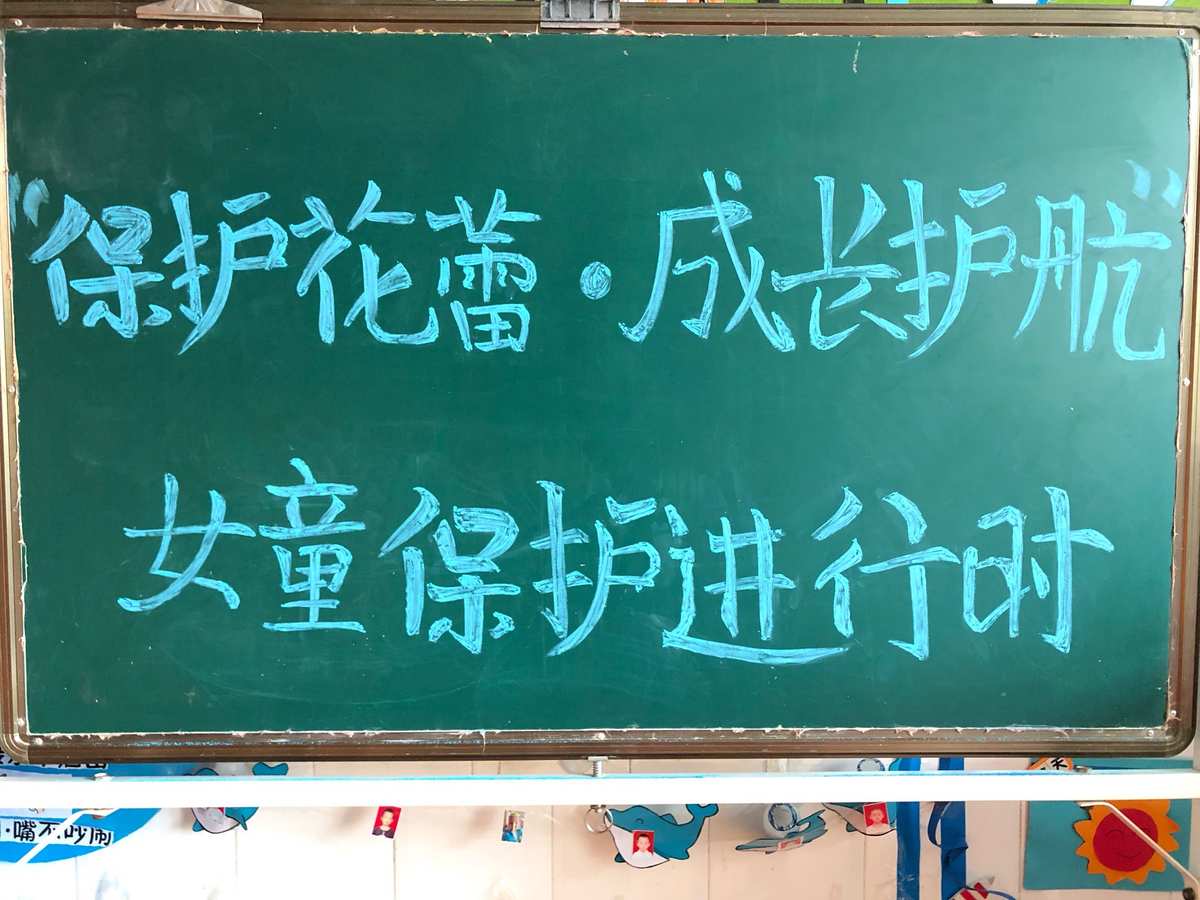 “保护花蕾·成长护航”
女童保护进行时
·嘴不吵闹